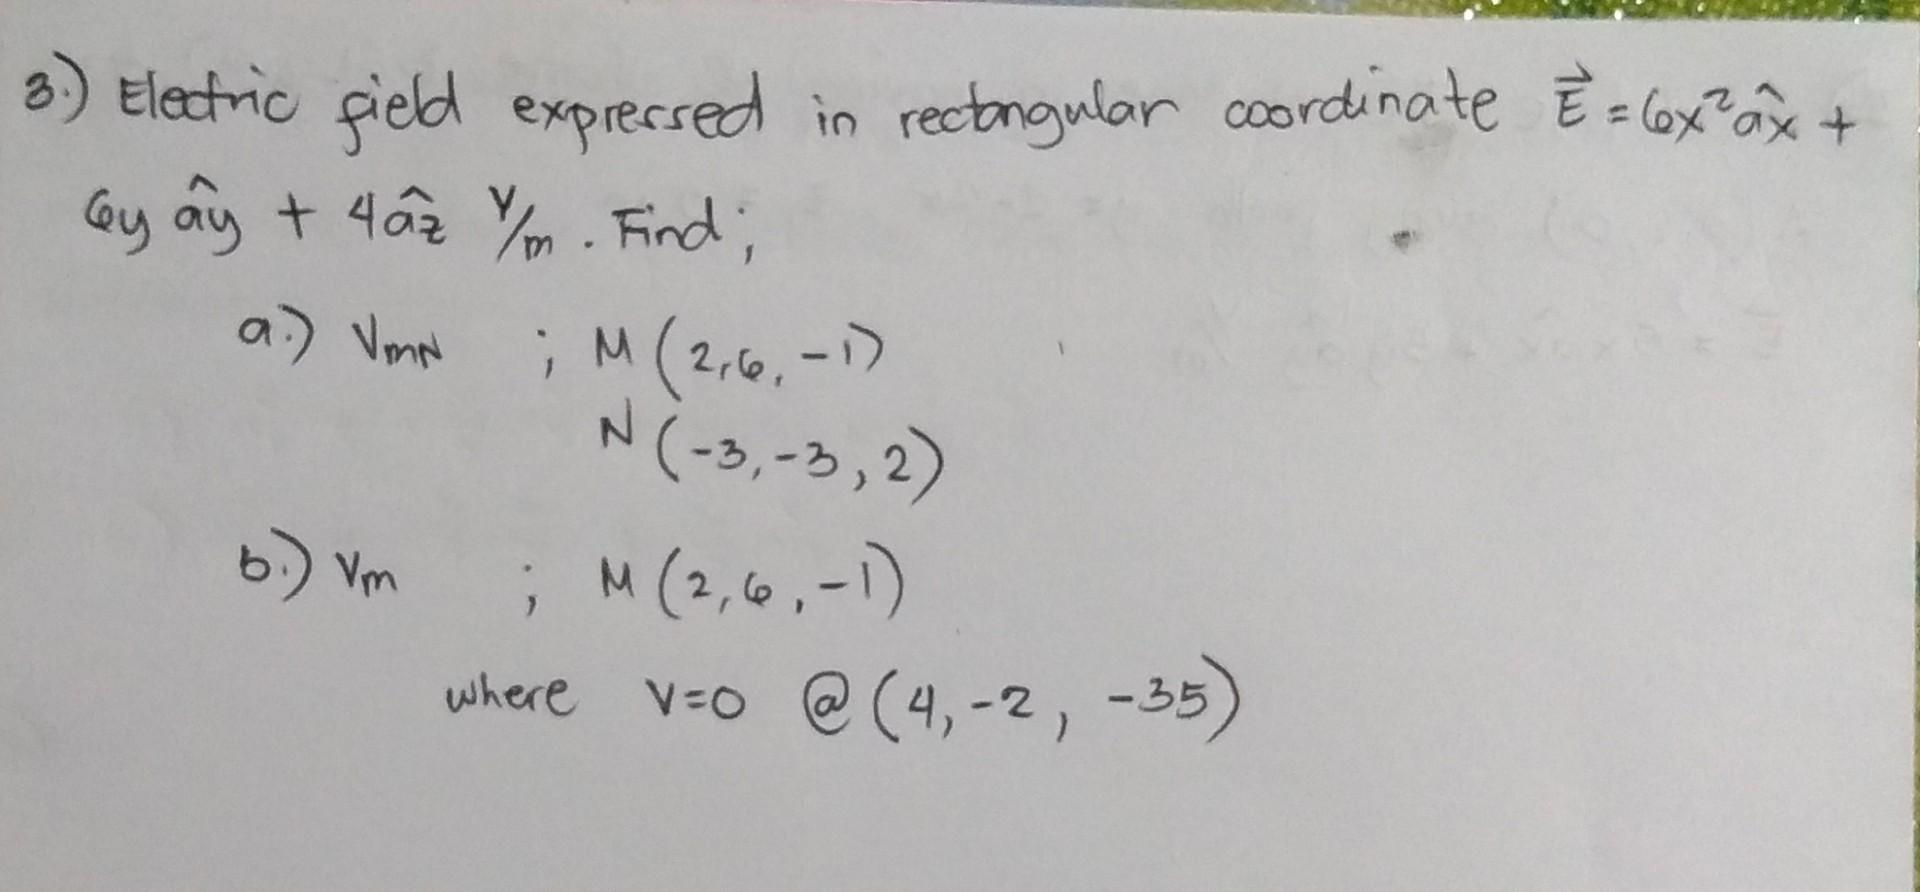 3.) Electric field expressed in rectangular coordinate E⃗ = 6x² âx +
6y ây + 4âz V/m. Find;
a.) VMN ; M(2,6,-1)
N(-3,-3,2)
b.) Vm ; M(2,6,-1)
where V=0 @ (4,-2, -35)